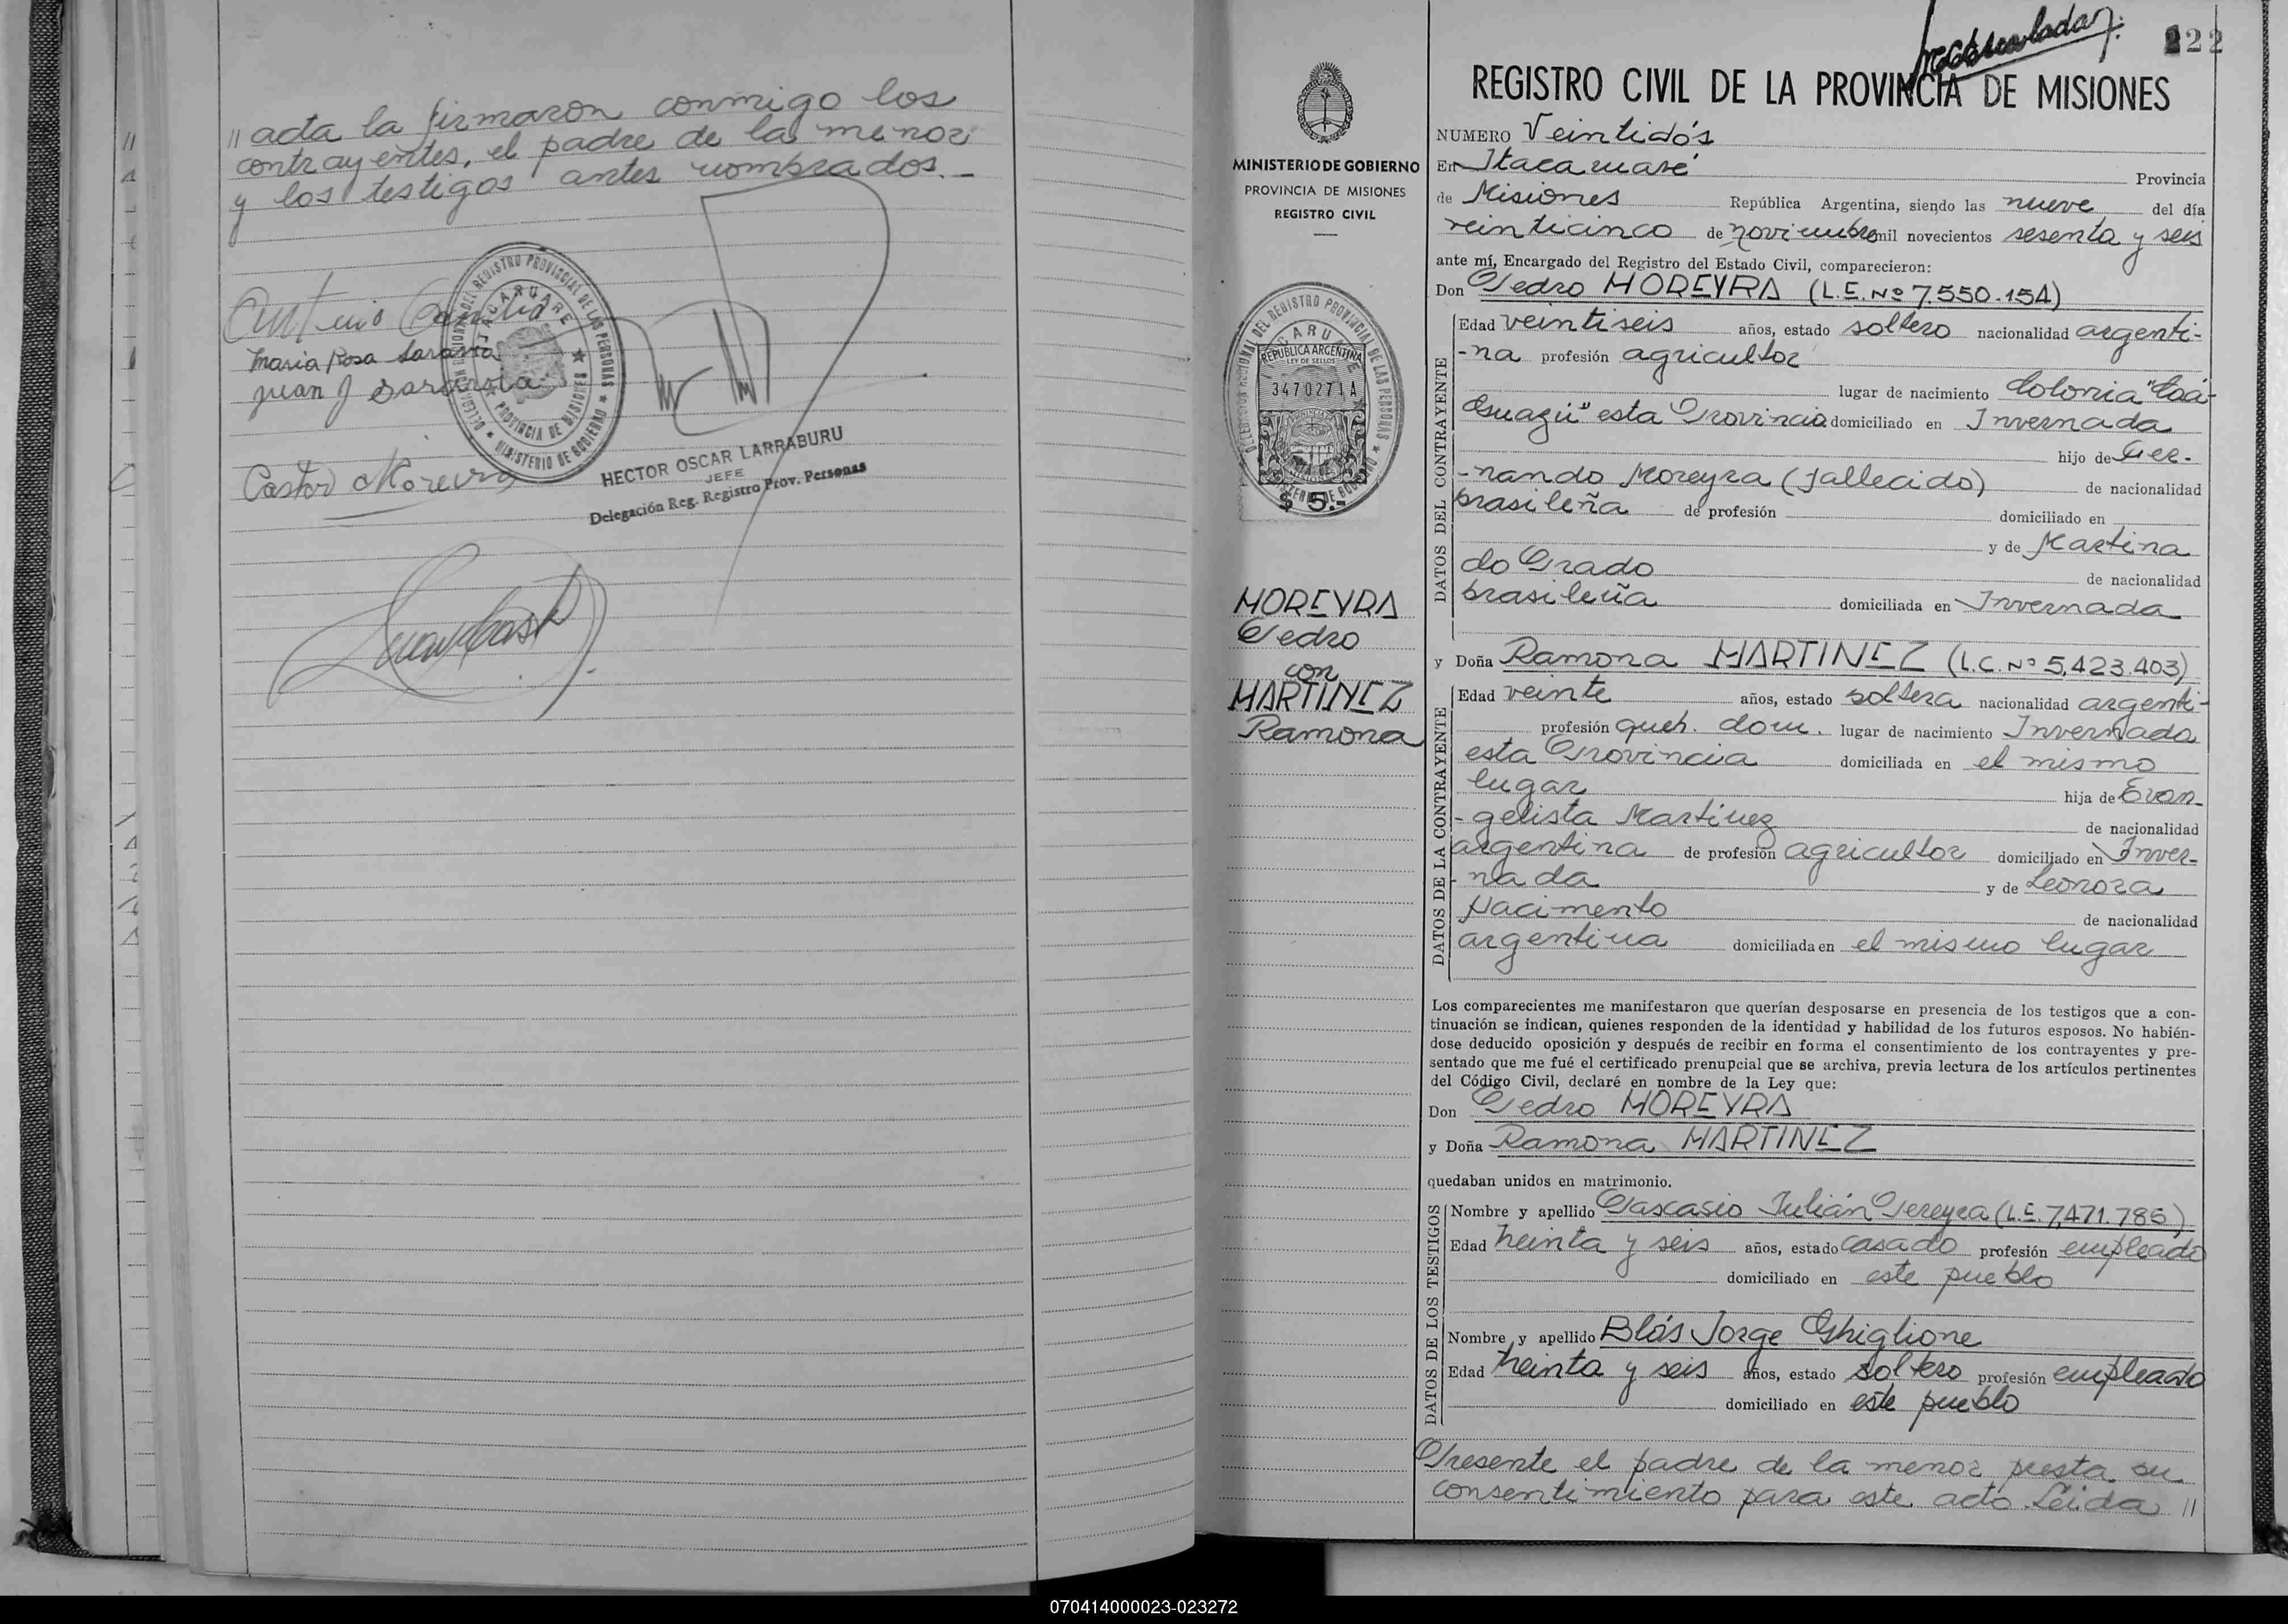 // acta la firmaron conmigo los
contrayentes, el padre de la menor
y los testigos antes nombrados.-
Maria Rosa
Juan J
Castor Moreira
DELEGACION REGIONAL DEL REGISTRO PROVINCIAL DE LAS PERSONAS
ITACARUARE
PROVINCIA DE MISIONES
MINISTERIO DE GOBIERNO
HECTOR OSCAR LARRABURU
JEFE
Delegación Reg. Registro Prov. Personas
222
REGISTRO CIVIL DE LA PROVINCIA DE MISIONES
MINISTERIO DE GOBIERNO
PROVINCIA DE MISIONES
REGISTRO CIVIL
REPUBLICA ARGENTINA
LEY DE SELLOS
3470271 A
$ 5.-
MOREYRA
Pedro
con
MARTINEZ
Ramona
NUMERO Veintidós
En Itacaruaré Provincia
de Misiones República Argentina, siendo las nueve del día
veinticinco de noviembre mil novecientos sesenta y seis
ante mí, Encargado del Registro del Estado Civil, comparecieron:
Don Pedro MOREYRA (L.E. Nº 7.550.154)
DATOS DEL CONTRAYENTE
Edad veintiseis años, estado soltero nacionalidad argenti-
-na profesión agricultor
lugar de nacimiento Colonia "Caá-
Guazú" esta Provincia domiciliado en Invernada
hijo de Fer-
-nando Moreyra (fallecido) de nacionalidad
brasileña de profesión domiciliado en
y de Martina
do Prado de nacionalidad
brasileña domiciliada en Invernada
y Doña Ramona MARTINEZ (L.C. Nº 5,423.403)
DATOS DE LA CONTRAYENTE
Edad veinte años, estado soltera nacionalidad argenti-
profesión queh. dom. lugar de nacimiento Invernada
esta Provincia domiciliada en el mismo
lugar hija de Evan-
-gelista Martinez de nacionalidad
argentina de profesión agricultor domiciliado en Inver-
-nada y de Leonora
Nacimento de nacionalidad
argentina domiciliada en el mismo lugar
Los comparecientes me manifestaron que querían desposarse en presencia de los testigos que a con-
tinuación se indican, quienes responden de la identidad y habilidad de los futuros esposos. No habién-
dose deducido oposición y después de recibir en forma el consentimiento de los contrayentes y pre-
sentado que me fué el certificado prenupcial que se archiva, previa lectura de los artículos pertinentes
del Código Civil, declaré en nombre de la Ley que:
Don Pedro MOREYRA
y Doña Ramona MARTINEZ
quedaban unidos en matrimonio.
DATOS DE LOS TESTIGOS
Nombre y apellido Pascasio Julián Pereyra (L.E. 7,471.786)
Edad treinta y seis años, estado casado profesión empleado
domiciliado en este pueblo
Nombre y apellido Blás Jorge Ghiglione
Edad treinta y seis años, estado soltero profesión empleado
domiciliado en este pueblo
Presente el padre de la menor presta su
consentimiento para este acto Leida //
070414000023-023272